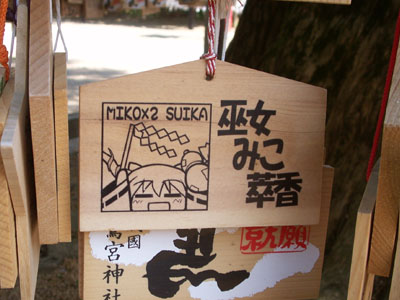 MIKO×2 SUIKA
巫女
みこ
萃香
就願
國
宮神社